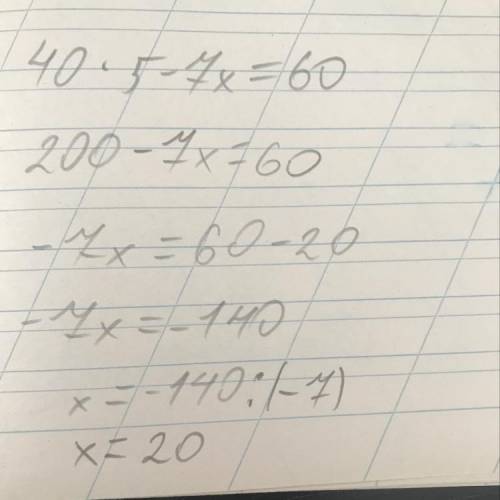 40·5-7x=60
200-7x=60
-7x=60-20
-7x=-140
x=-140:(-7)
x=20